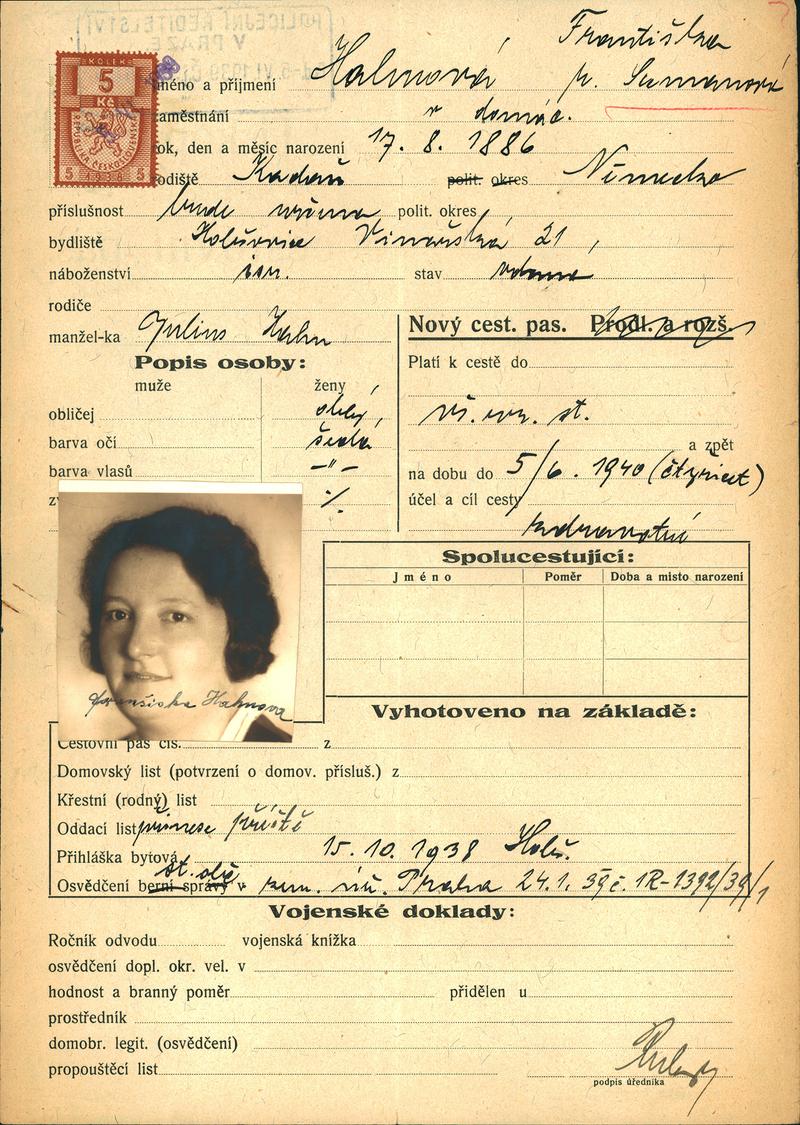 POLICEJNÍ ŘEDITELSTVÍ
V PRAZE
KOLEK
5
Kč
REPUBLIKA ČESKOSLOVENSKÁ
5 1938 5
Františka
méno a příjmení Hahnová r. Sumanová
aměstnání v domác.
ok, den a měsíc narození 17. 8. 1886
odiště Kadaň polit. okres Německo
příslušnost bude určena polit. okres
bydliště Holešovice Vinařská 21,
náboženství isr. stav vdaná
rodiče
manžel-ka Julius Hahn
Nový cest. pas. Prodl. a rozš.
Popis osoby:
muže ženy
obličej oblý
barva očí šedá
barva vlasů —"—
zv ·/.
Platí k cestě do
vš. evr. st.
a zpět
na dobu do 5/6. 1940 (čtyřicet)
účel a cíl cesty
zdravotní
Františka Hahnova
Spolucestující:
Jméno Poměr Doba a místo narození
Vyhotoveno na základě:
Cestovní pas čís. z
Domovský list (potvrzení o domov. přísluš.) z
Křestní (rodný) list
Oddací list přinese příště
Přihláška bytová 15. 10. 1938 Holeš.
st. obč.
Osvědčení berní správy v zem. úř. Praha 24.1. 39 č. 1R-1392/39/1
Vojenské doklady:
Ročník odvodu vojenská knížka
osvědčení dopl. okr. vel. v
hodnost a branný poměr přidělen u
prostředník
domobr. legit. (osvědčení)
propouštěcí list
podpis úředníka